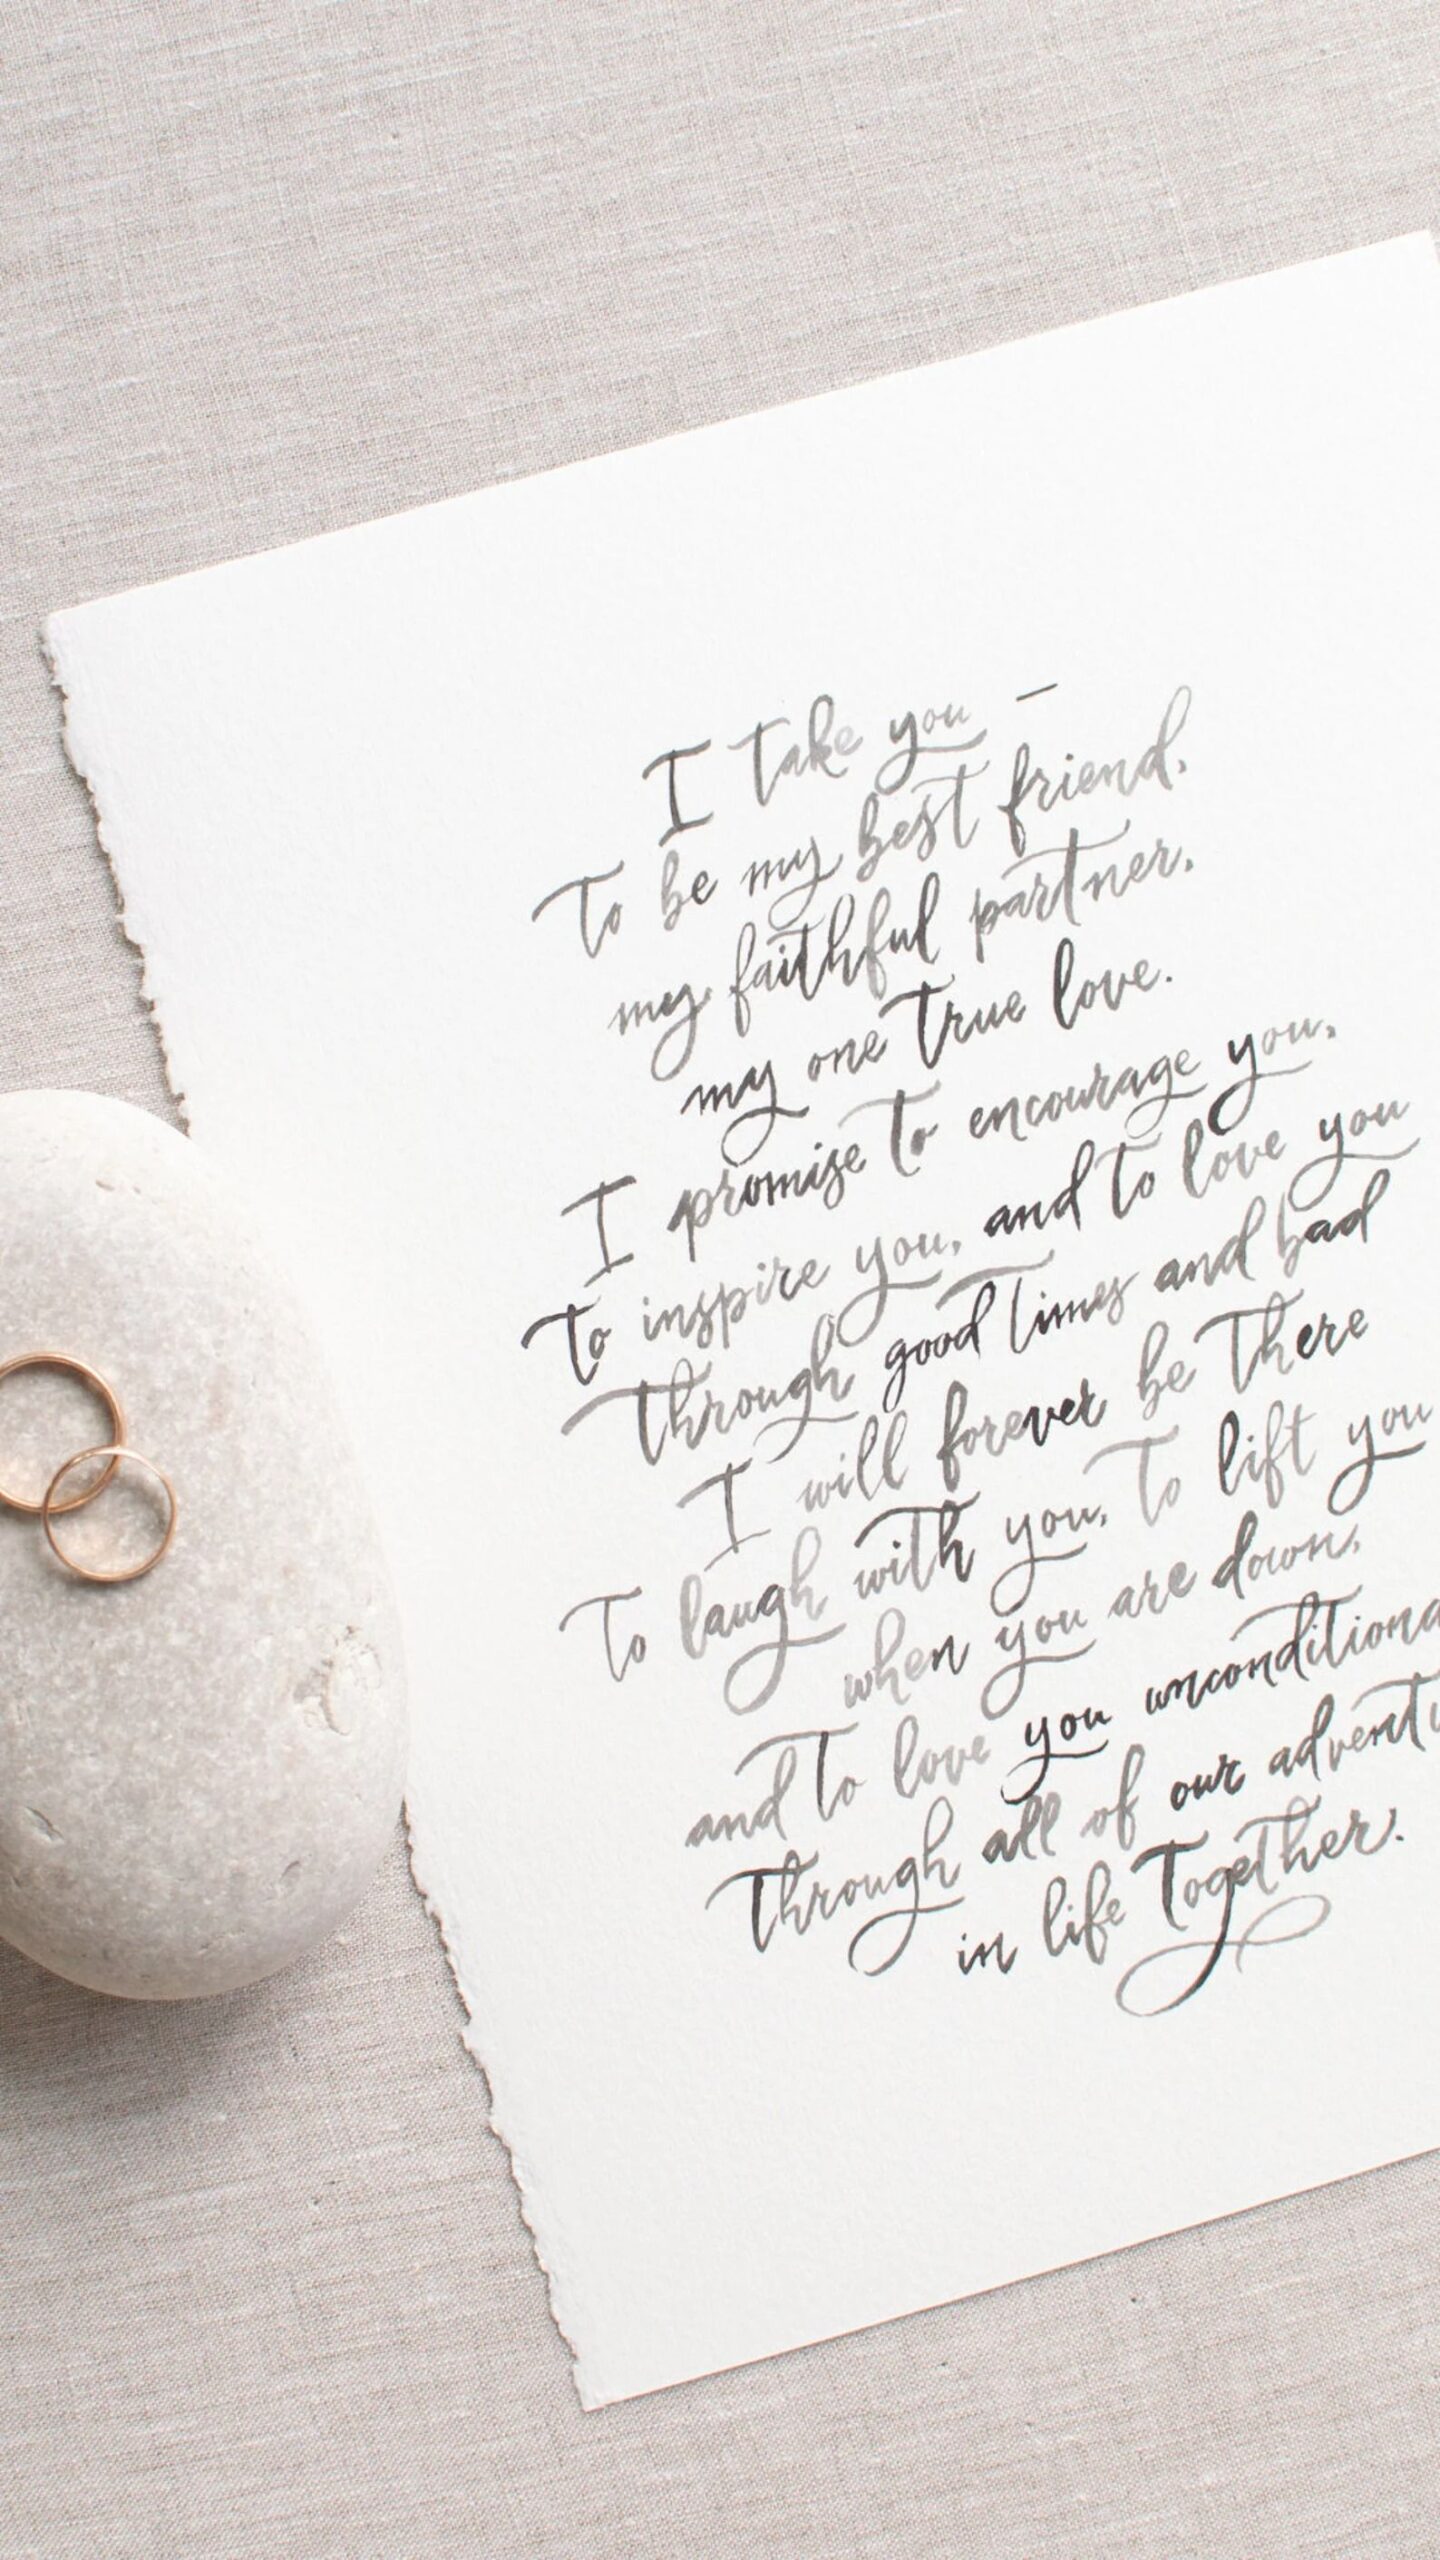 I take you —
to be my best friend,
my faithful partner,
my one true love.
I promise to encourage you,
to inspire you, and to love you
through good times and bad
I will forever be there
to laugh with you, to lift you
when you are down,
and to love you unconditiona
through all of our adventu
in life together.